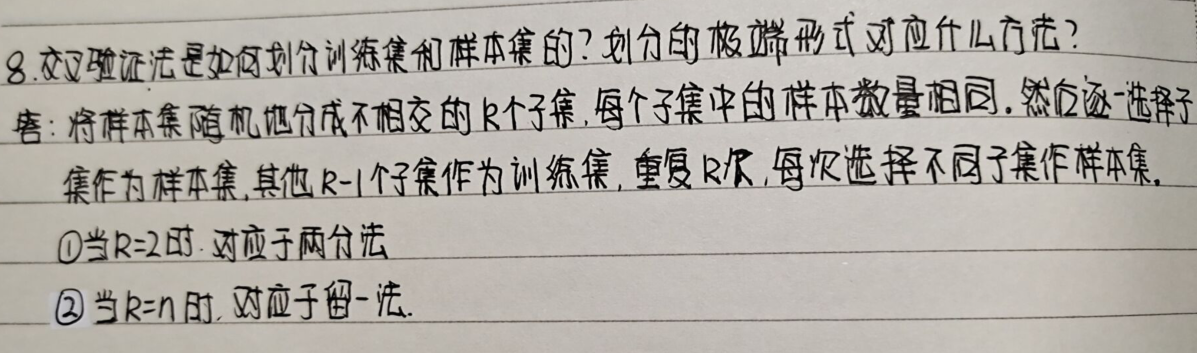 8.交叉验证法是如何划分训练集和样本集的?划分的极端形式对应什么方法?
答:将样本集随机地分成不相交的k个子集,每个子集中的样本数量相同.然后逐一选择子
集作为样本集,其他k-1个子集作为训练集,重复k次,每次选择不同子集作样本集.
①当k=2时.对应于两分法
②当k=n时.对应于留一法.